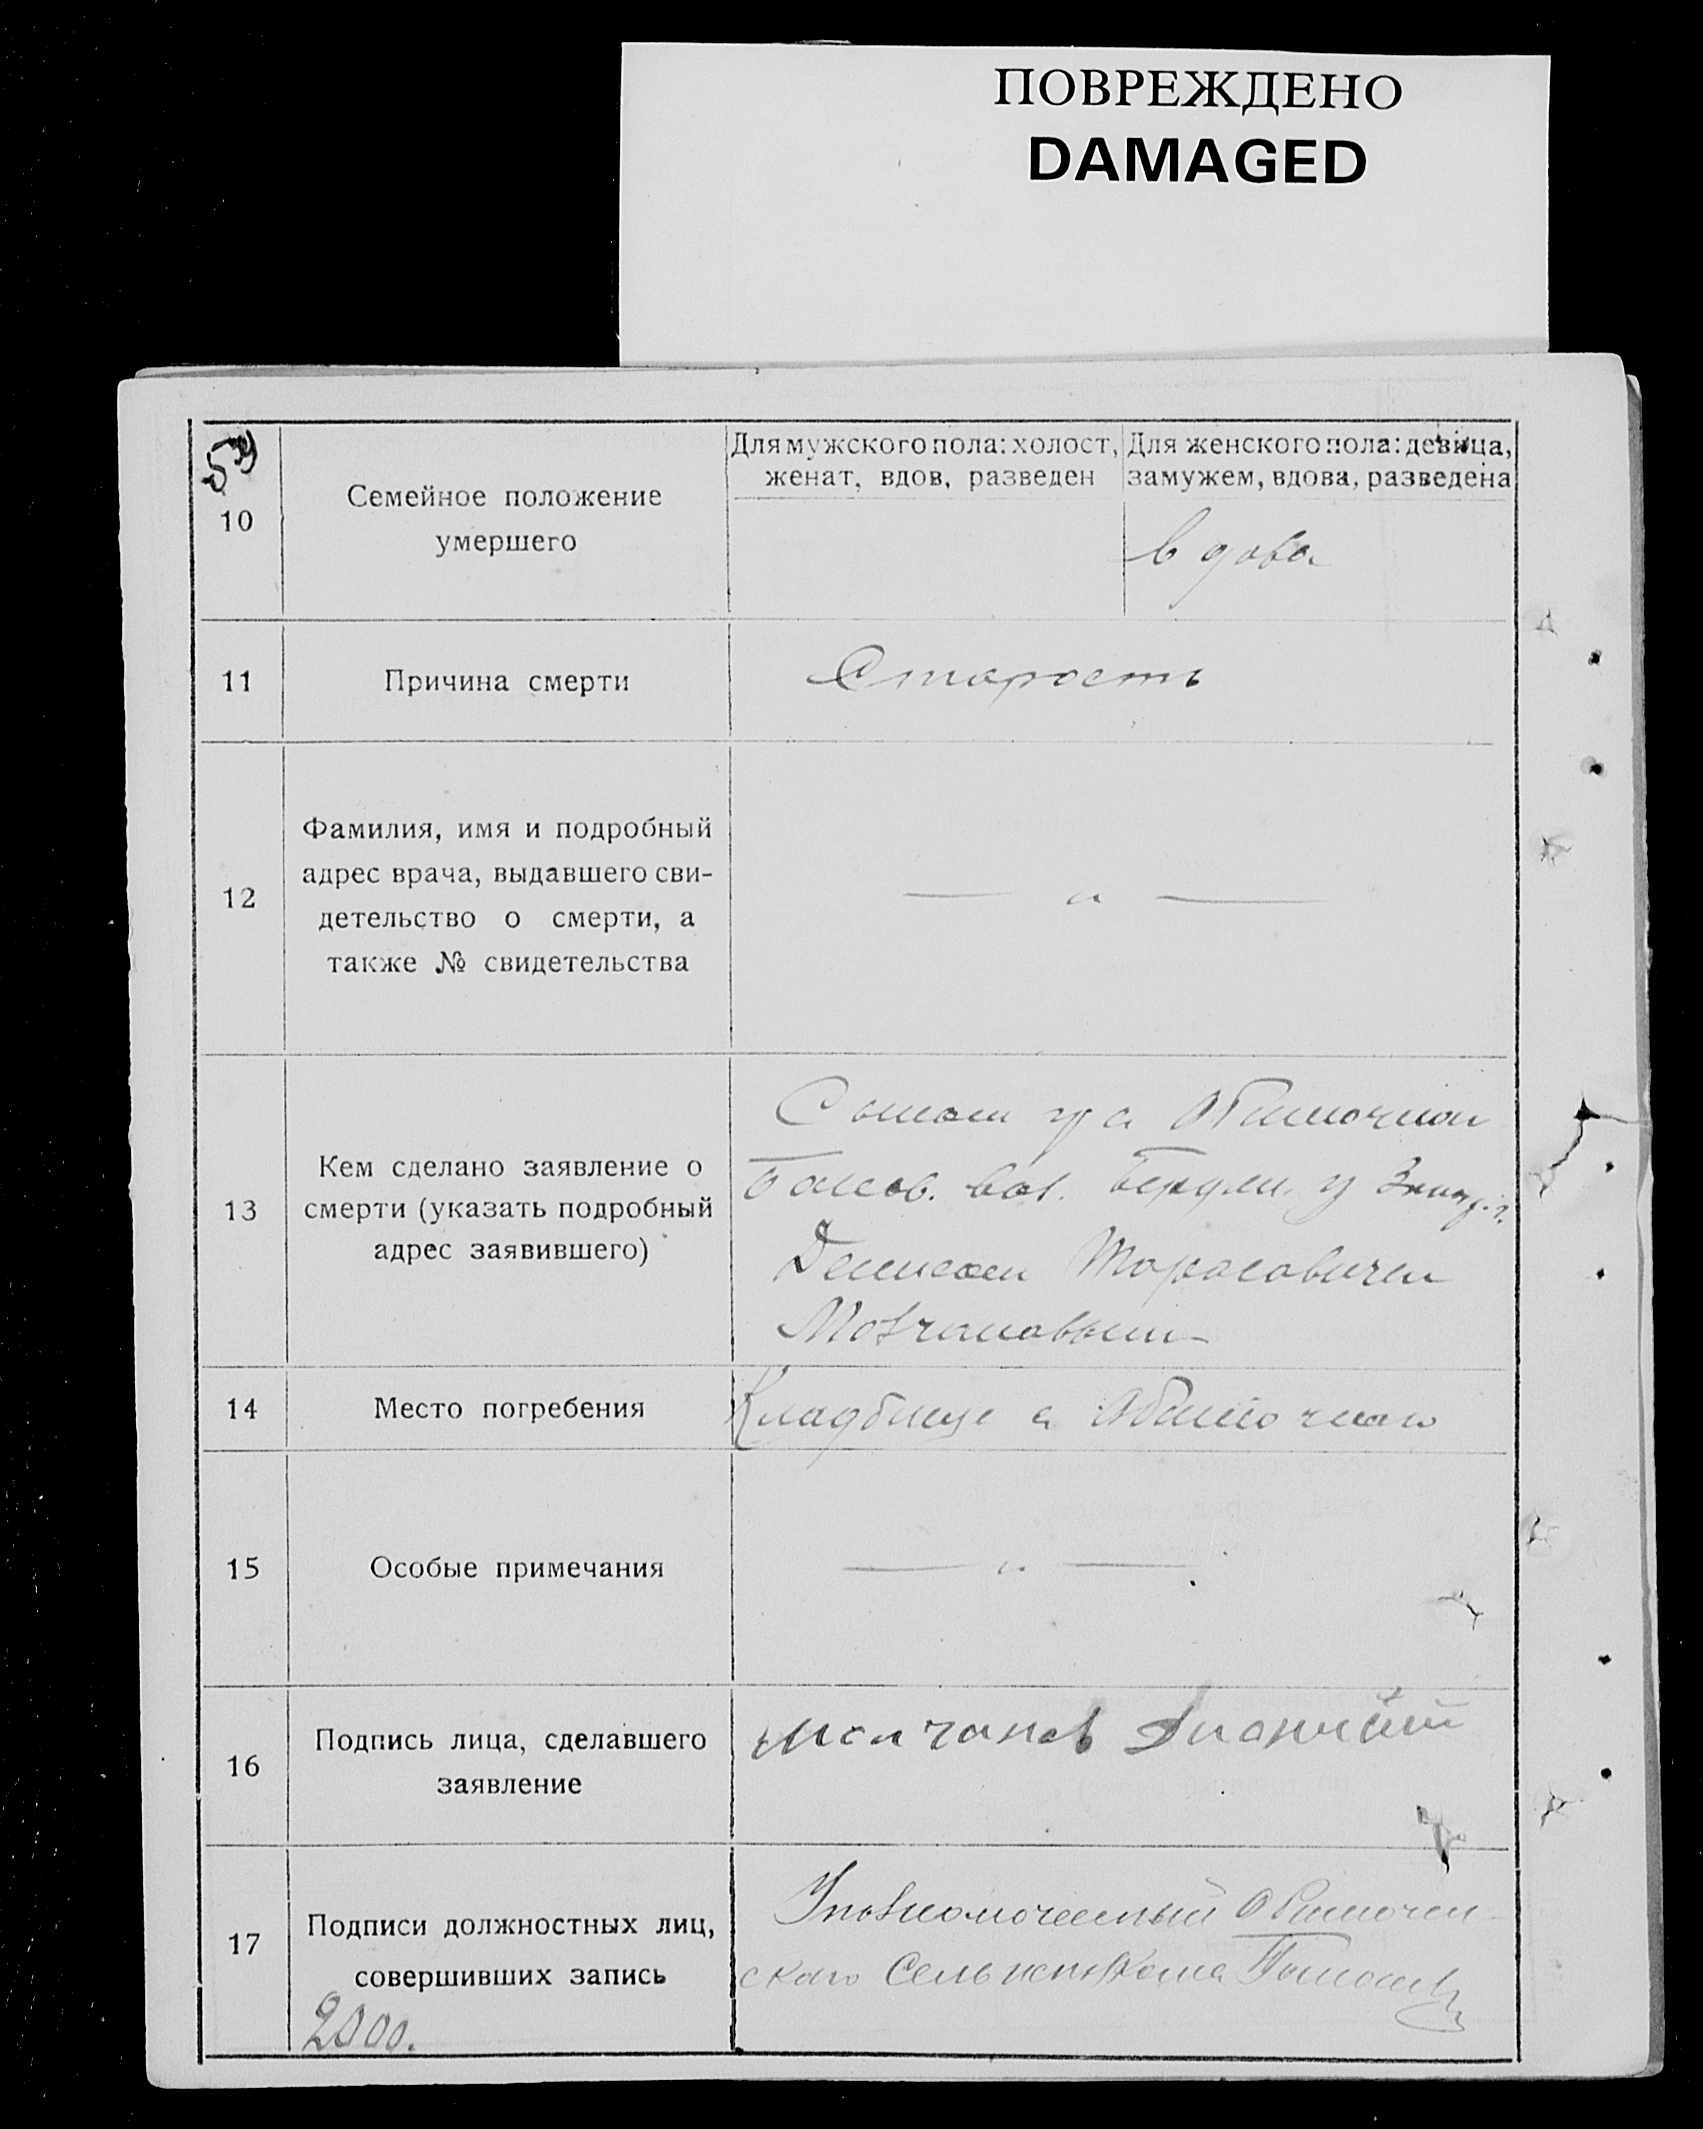 ПОВРЕЖДЕНО
DAMAGED
10
Семейное положение
умершего
Для мужского пола: холост,
женат, вдов, разведен
Для женского пола: девица,
замужем, вдова, разведена
вдова
11
Причина смерти
Старость
12
Фамилия, имя и подробный
адрес врача, выдавшего сви-
детельство о смерти, а
также № свидетельства
— „ —
13
Кем сделано заявление о
смерти (указать подробный
адрес заявившего)
Сыном
вол.
Тарасовичем
Молчановым
14
Место погребения
Кладбище
15
Особые примечания
— „ —
16
Подпись лица, сделавшего
заявление
Молчанов
17
Подписи должностных лиц,
совершивших запись
Уполномоченный
ского Сельисполкома
2000.